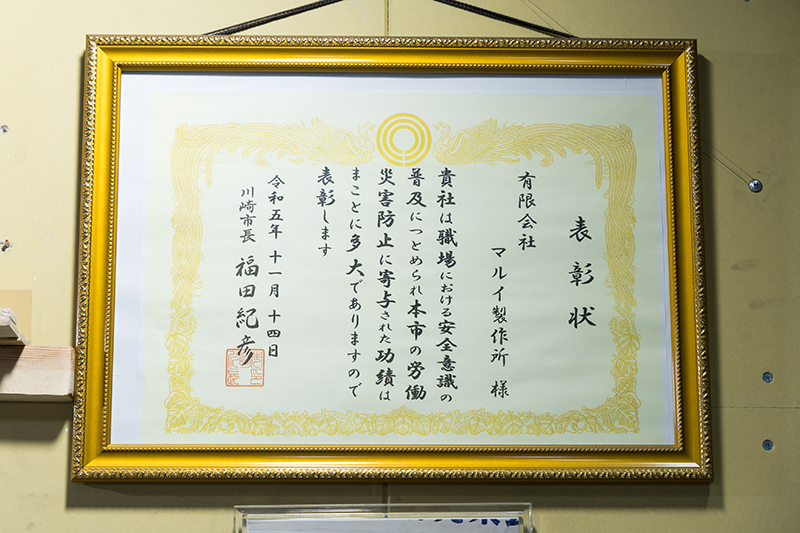 表彰状
有限会社
マルイ製作所 様
貴社は職場における安全意識の
普及につとめられ本市の労働
災害防止に寄与された功績は
まことに多大でありますので
表彰します
令和五年 十一月 十四日
川崎市長 福田紀彦